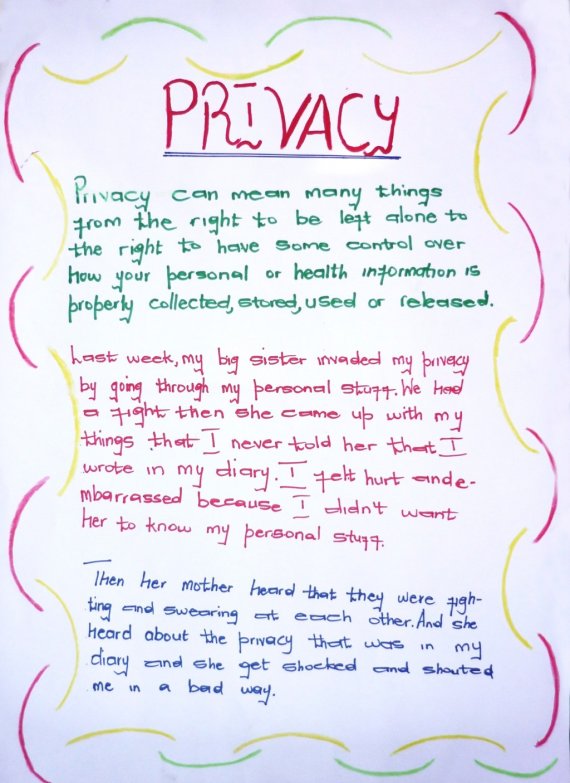 PRIVACY
Privacy can mean many things
from the right to be left alone to
the right to have some control over
how your personal or health information is
properly collected, stored, used or released.
Last week, my big sister invaded my privacy
by going through my personal stuff. We Had
a fight then she came up with my
things that I never told her that I
wrote in my diary. I felt hurt and e-
mbarrassed because I didn't want
Her to know my personal stuff.
Then her mother heard that they were figh-
ting and swearing at each other. And she
heard about the privacy that was in my
diary and she get shocked and shouted
me in a bad way.